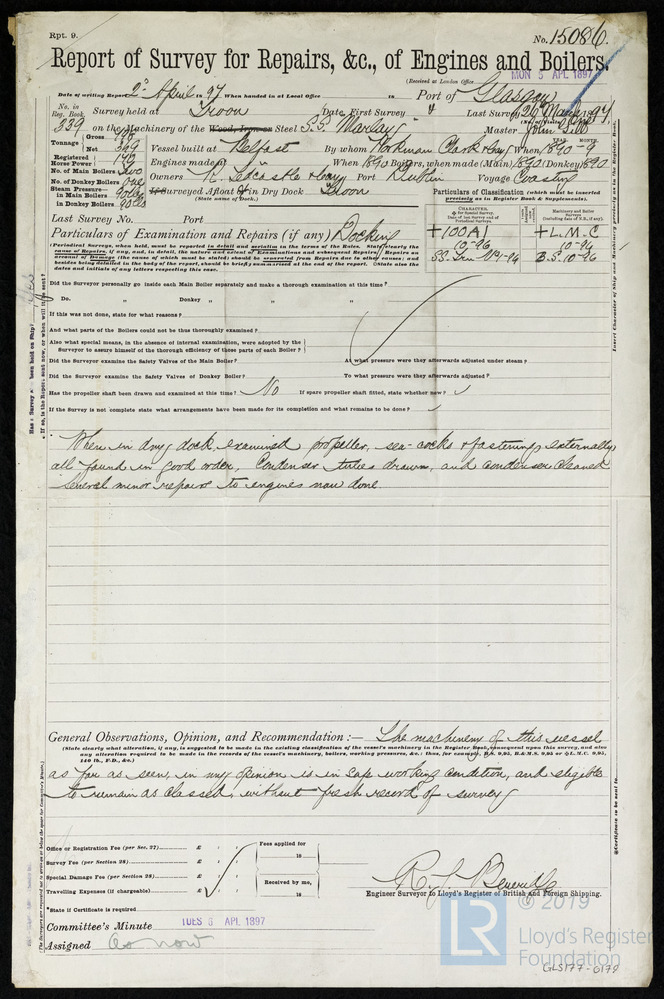 Rpt. 9.
No. 15086.
Report of Survey for Repairs, &c., of Engines and Boilers.
(Received at London Office MON 5 APL 1897
Date of writing Report 2nd April 1897 When handed in at Local Office 18 Port of Glasgow
No. in Reg. Book. Survey held at Troon Date, First Survey Last Survey 26 March 1897
339 on the Machinery of the Wood, Iron or Steel S.S. "Marlay" Master John Gibb
Tonnage Gross Net 399 Vessel built at Belfast By whom Workman Clark & Coy When 1890-9
Registered Horse Power Engines made at " When 1890 Boilers, when made (Main) 1890 (Donkey) 1890
No. of Main Boilers Two Owners Port Dublin Voyage Coasting
No. of Donkey Boilers One
Steam Pressure in Main Boilers
in Donkey Boilers
If Surveyed Afloat or in Dry Dock Troon
(State name of Dock.)
Particulars of Classification (which must be inserted precisely as in Register Book & Supplements).
Last Survey No. Port
CHARACTER.
Machinery and Boiler Surveys
+100A1 +L.M.C
10-96 10-96
B.S. 10-96
Particulars of Examination and Repairs (if any) Docking
(Periodical Surveys, when held, must be reported in detail and seriatim in the terms of the Rules. State clearly the
cause of Repairs, if any, and, in detail, the nature and extent of Examinations and Repairs. Repairs on
account of Damage (the cause of which must be stated) should be separated from Repairs due to other causes; and
besides being detailed in the body of the report, should be briefly summarised at the end of the report. State also the
dates and initials of any letters respecting this case.
Did the Surveyor personally go inside each Main Boiler separately and make a thorough examination at this time?
Do. " Donkey " "
If this was not done, state for what reasons?
And what parts of the Boilers could not be thus thoroughly examined?
Also what special means, in the absence of internal examination, were adopted by the
Surveyor to assure himself of the thorough efficiency of those parts of each Boiler?
Did the Surveyor examine the Safety Valves of the Main Boiler? At what pressure were they afterwards adjusted under steam?
Did the Surveyor examine the Safety Valves of Donkey Boiler? To what pressure were they afterwards adjusted?
Has the propeller shaft been drawn and examined at this time? No If spare propeller shaft fitted, state whether new?
If the Survey is not complete state what arrangements have been made for its completion and what remains to be done?
When in dry dock, examined propeller, sea-cocks & fastenings externally
all found in good order, Condenser tubes drawn, and condenser cleaned
Several minor repairs to engines now done.
General Observations, Opinion, and Recommendation :— The machinery of this vessel
(State clearly what alteration, if any, is suggested to be made in the existing classification of the vessel's machinery in the Register Book, consequent upon this survey, and also
any alteration required to be made in the records of the vessel's machinery, boilers, working pressures, &c.: thus, for example, B.S. 9,95, B.&M.S. 9,95 or L.M.C. 9,95,
140 lb., F.D., &c.)
as far as seen, in my opinion is in safe working condition, and eligible
to remain as classed, without fresh record of survey
Office or Registration Fee (per Sec. 27) £ : : Fees applied for
Survey Fee (per Section 28) £ : : 18
Special Damage Fee (per Section 28) £ : : Received by me,
Travelling Expenses (if chargeable) £ : : 18
R. L. Beveridge
Engineer Surveyor to Lloyd's Register of British and Foreign Shipping.
*State if Certificate is required
Committee's Minute TUES 6 APL 1897
Assigned as now
© 2019
LR
Lloyd's Register
Foundation
GLS177-0179